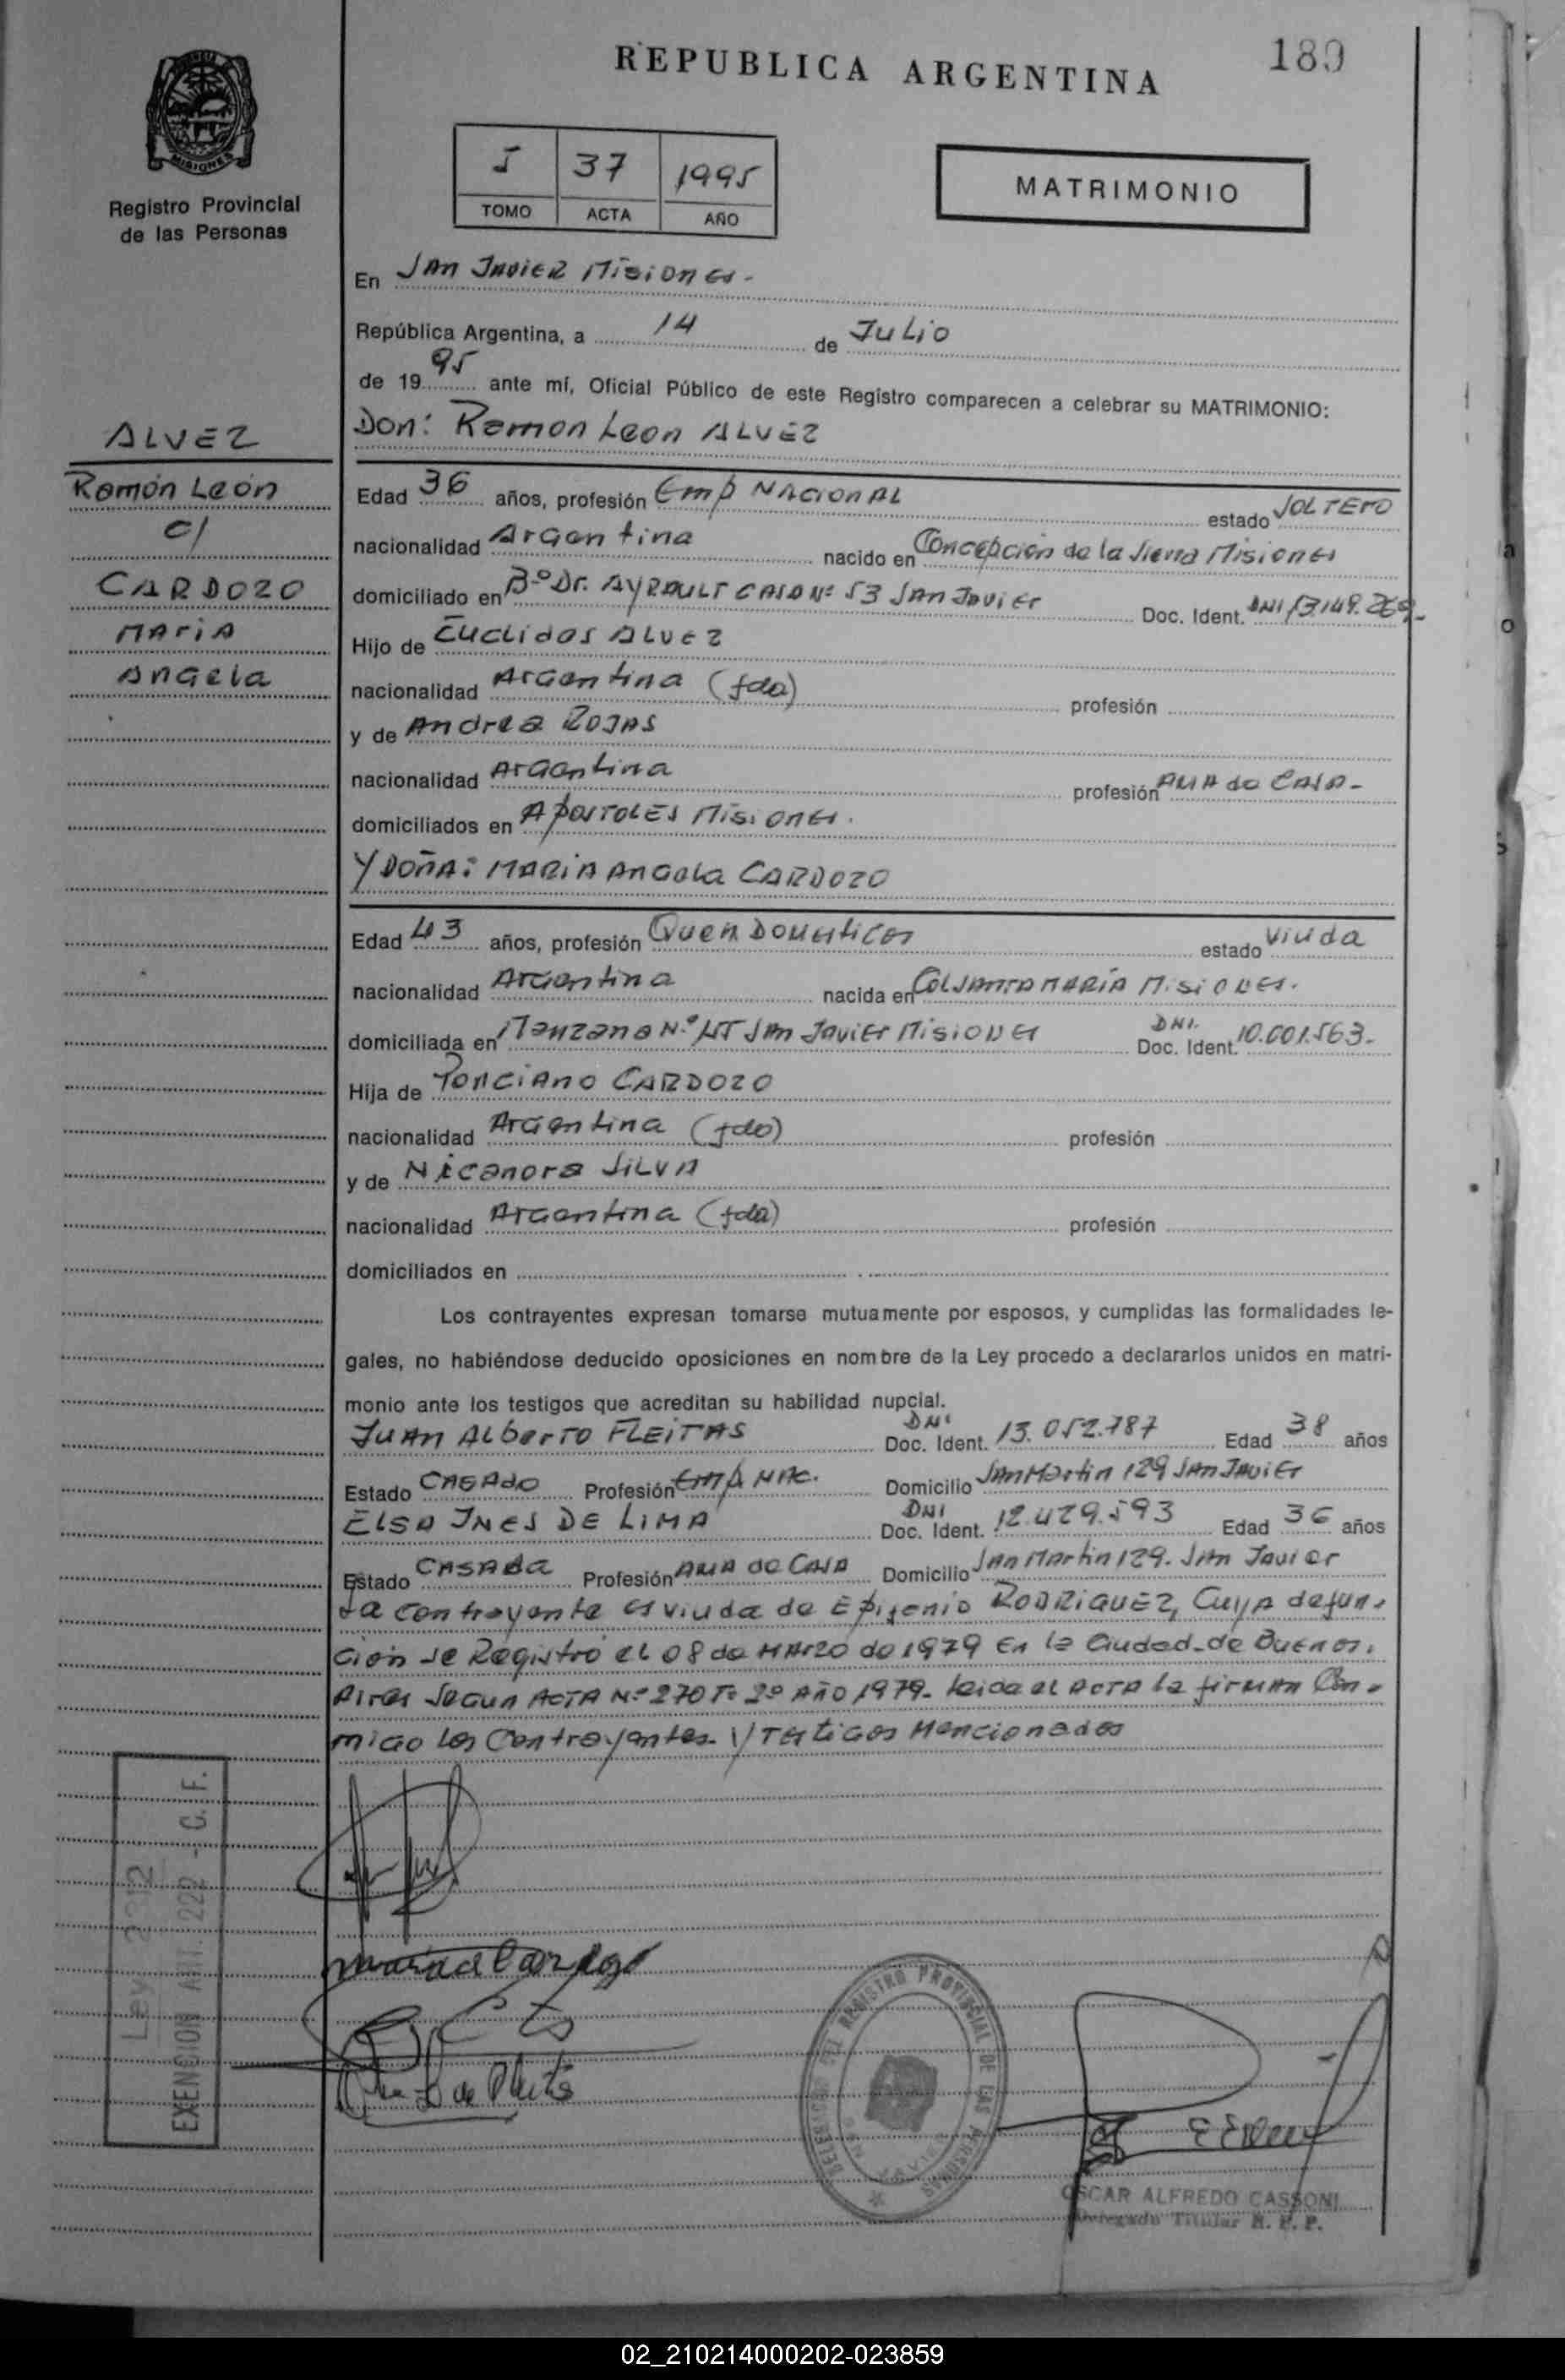 REPUBLICA ARGENTINA
189
MISIONES
Registro Provincial
de las Personas
I 37 1995
TOMO ACTA AÑO
MATRIMONIO
En San Javier Misiones.-
República Argentina, a 14 de Julio
de 1995 ante mí, Oficial Público de este Registro comparecen a celebrar su MATRIMONIO:
Don: Ramon Leon ALVEZ
ALVEZ
Ramón León
c/
CARDOZO
MARIA
Angela
Edad 36 años, profesión Emp NACIONAL estado SOLTERO
nacionalidad Argentina nacido en Concepción de la Sierra Misiones
domiciliado en Bº Dr. AYRAULT CASA Nº 53 San Javier Doc. Ident. DNI 13.149.269.-
Hijo de Euclidas ALVEZ
nacionalidad Argentina (fdo) profesión
y de Andrea ROJAS
nacionalidad Argentina profesión AMA de CASA-
domiciliados en APOSTOLES Misiones.
Y DOÑA: MARIA Angela CARDOZO
Edad 43 años, profesión Queh Domesticos estado Viuda
nacionalidad Argentina nacida en Col SANTA MARÍA Misiones.
domiciliada en Manzana N.º San Javier Misiones DNI. Doc. Ident. 10.001.563.-
Hija de Ponciano CARDOZO
nacionalidad Argentina (fdo) profesión
y de Nicanora SILVA
nacionalidad Argentina (fda) profesión
domiciliados en
Los contrayentes expresan tomarse mutuamente por esposos, y cumplidas las formalidades le-
gales, no habiéndose deducido oposiciones en nombre de la Ley procedo a declararlos unidos en matri-
monio ante los testigos que acreditan su habilidad nupcial.
JUAN ALberTO FLEITAS DNI Doc. Ident. 13.052.787 Edad 38 años
Estado CASADO Profesión Emp NAC. Domicilio San Martin 129 San Javier
ELSA INES DE LIMA DNI Doc. Ident. 12.429.593 Edad 36 años
Estado CASADA Profesión AMA de CASA Domicilio San Martin 129. San Javier
La contrayente es viuda de Epifenio RODRIGUEZ, Cuya defun-
ción se Registró el 08 de MARZO de 1979 En la Ciudad de Buenos.
Aires Segun ACTA Nº 270 Tº 2º AÑO 1979.- leida el ACTA la firman Con-
migo los Contrayentes. y Testigos Mencionados
Ley 2312
EXENCION ART. 222 - C. F.
DELEGACION DEL REGISTRO PROVINCIAL DE LAS PERSONAS
OSCAR ALFREDO CASSONI
Delegado Titular R. P. P.
02_210214000202-023859